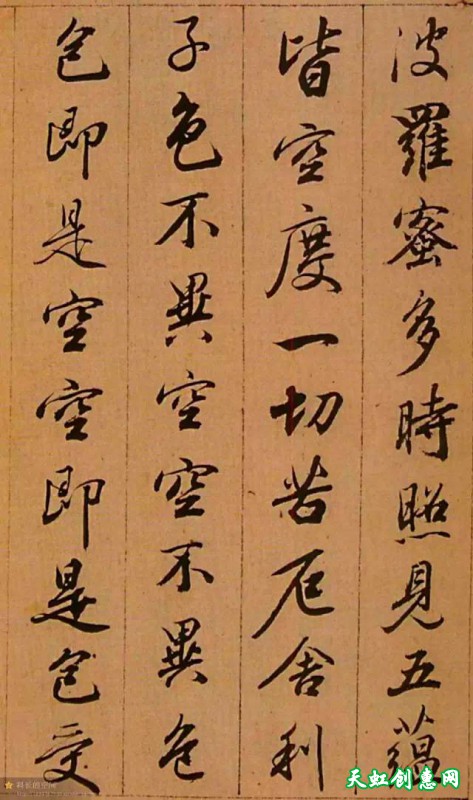 波羅蜜多時照見五蘊
皆空度一切苦厄舍利
子色不異空空不異色
色即是空空即是色受
天虹创意网